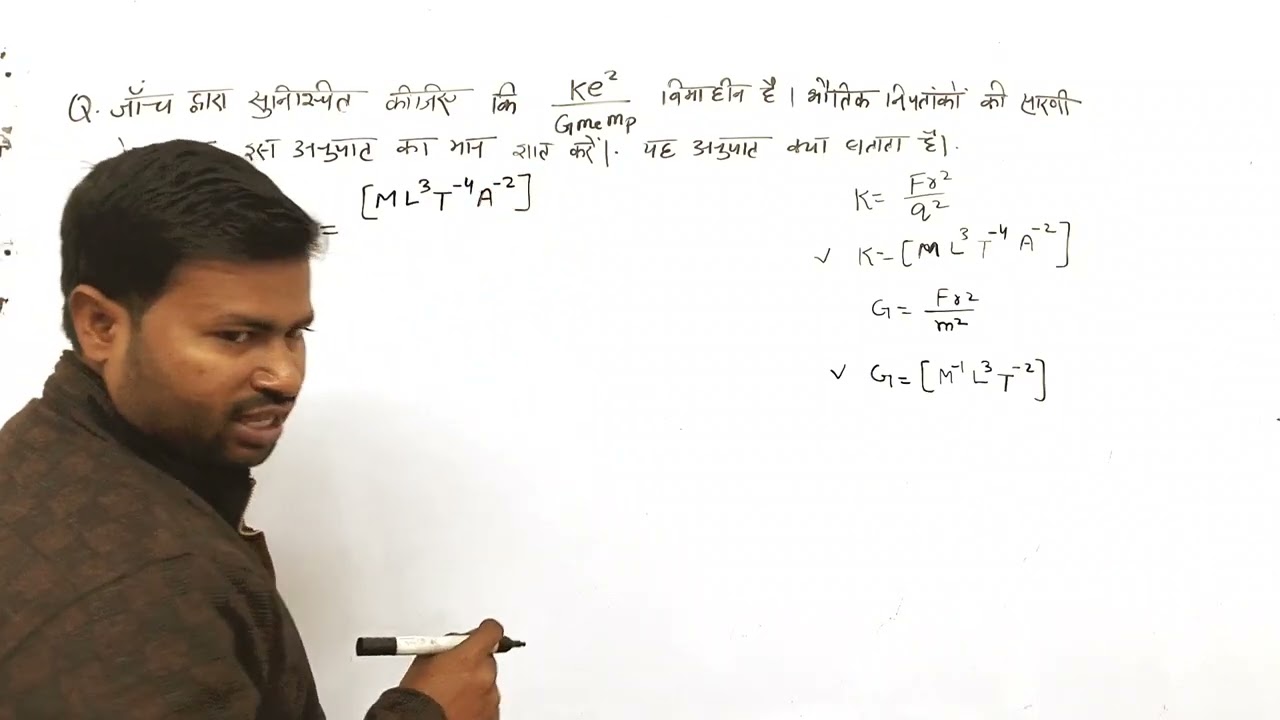 Q. जाँच द्वारा सुनिश्चित कीजिए कि Ke²/Gmemp विमाहीन है। भौतिक नियतांकों की सारणी
इस अनुपात का मान ज्ञात करें। यह अनुपात क्या बताता है।
[ML³T⁻⁴A⁻²]
=
K= Fr²/q²
✓ K=[ML³T⁻⁴A⁻²]
G = Fr²/m²
✓ G=[M⁻¹L³T⁻²]